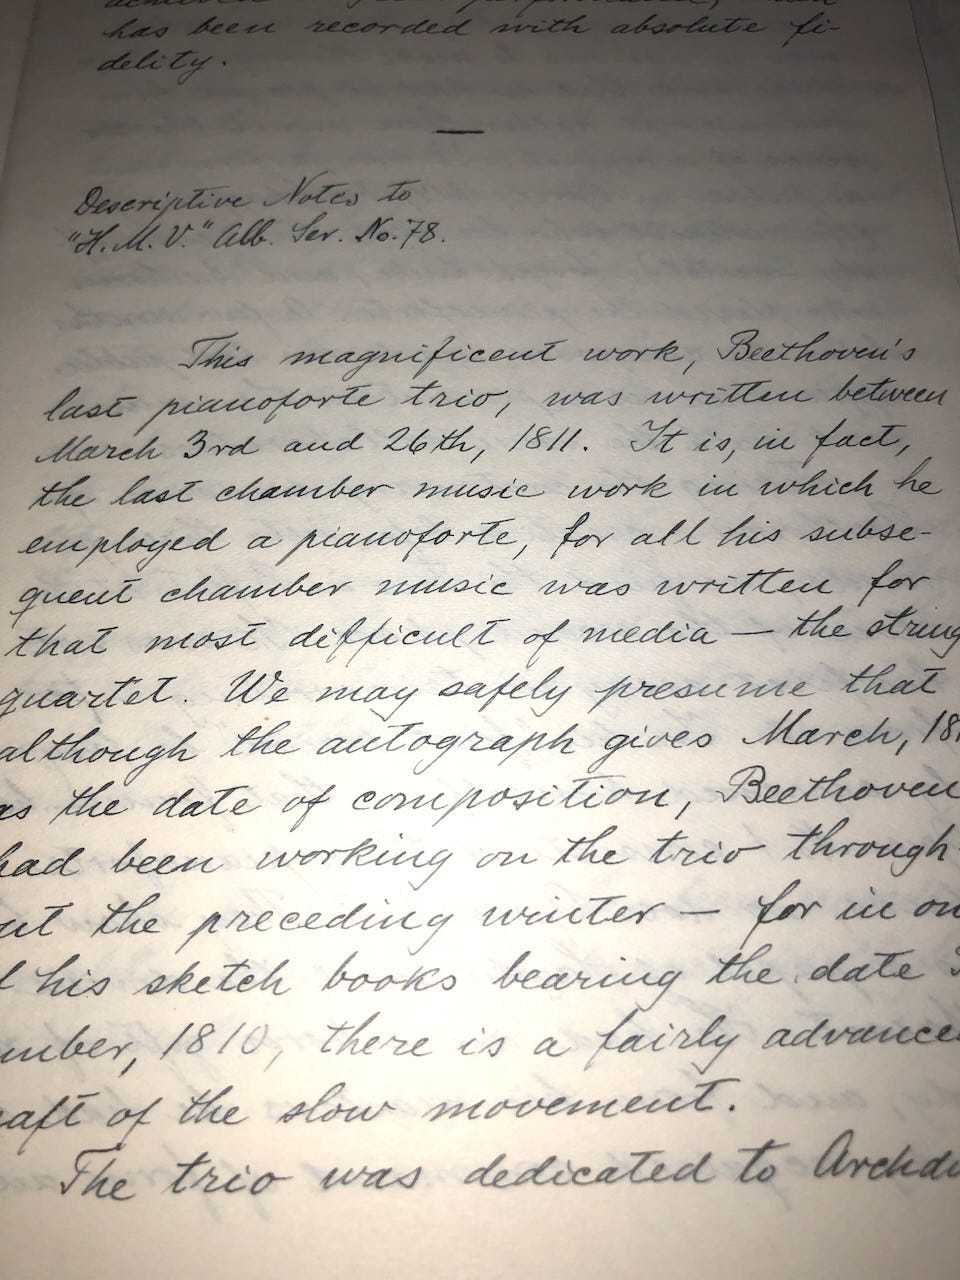 has been recorded with absolute fi-
delity.
Descriptive Notes to
"H. M. V." Alb. Ser. No. 78.
This magnificent work, Beethoven's
last pianoforte trio, was written between
March 3rd and 26th, 1811. It is, in fact,
the last chamber music work in which he
employed a pianoforte, for all his subse-
quent chamber music was written for
that most difficult of media — the string
quartet. We may safely presume that
although the autograph gives March, 181
as the date of composition, Beethoven
had been working on the trio through-
ut the preceding winter — for in on
his sketch books bearing the date
mber, 1810, there is a fairly advance
raft of the slow movement.
The trio was dedicated to Archdu